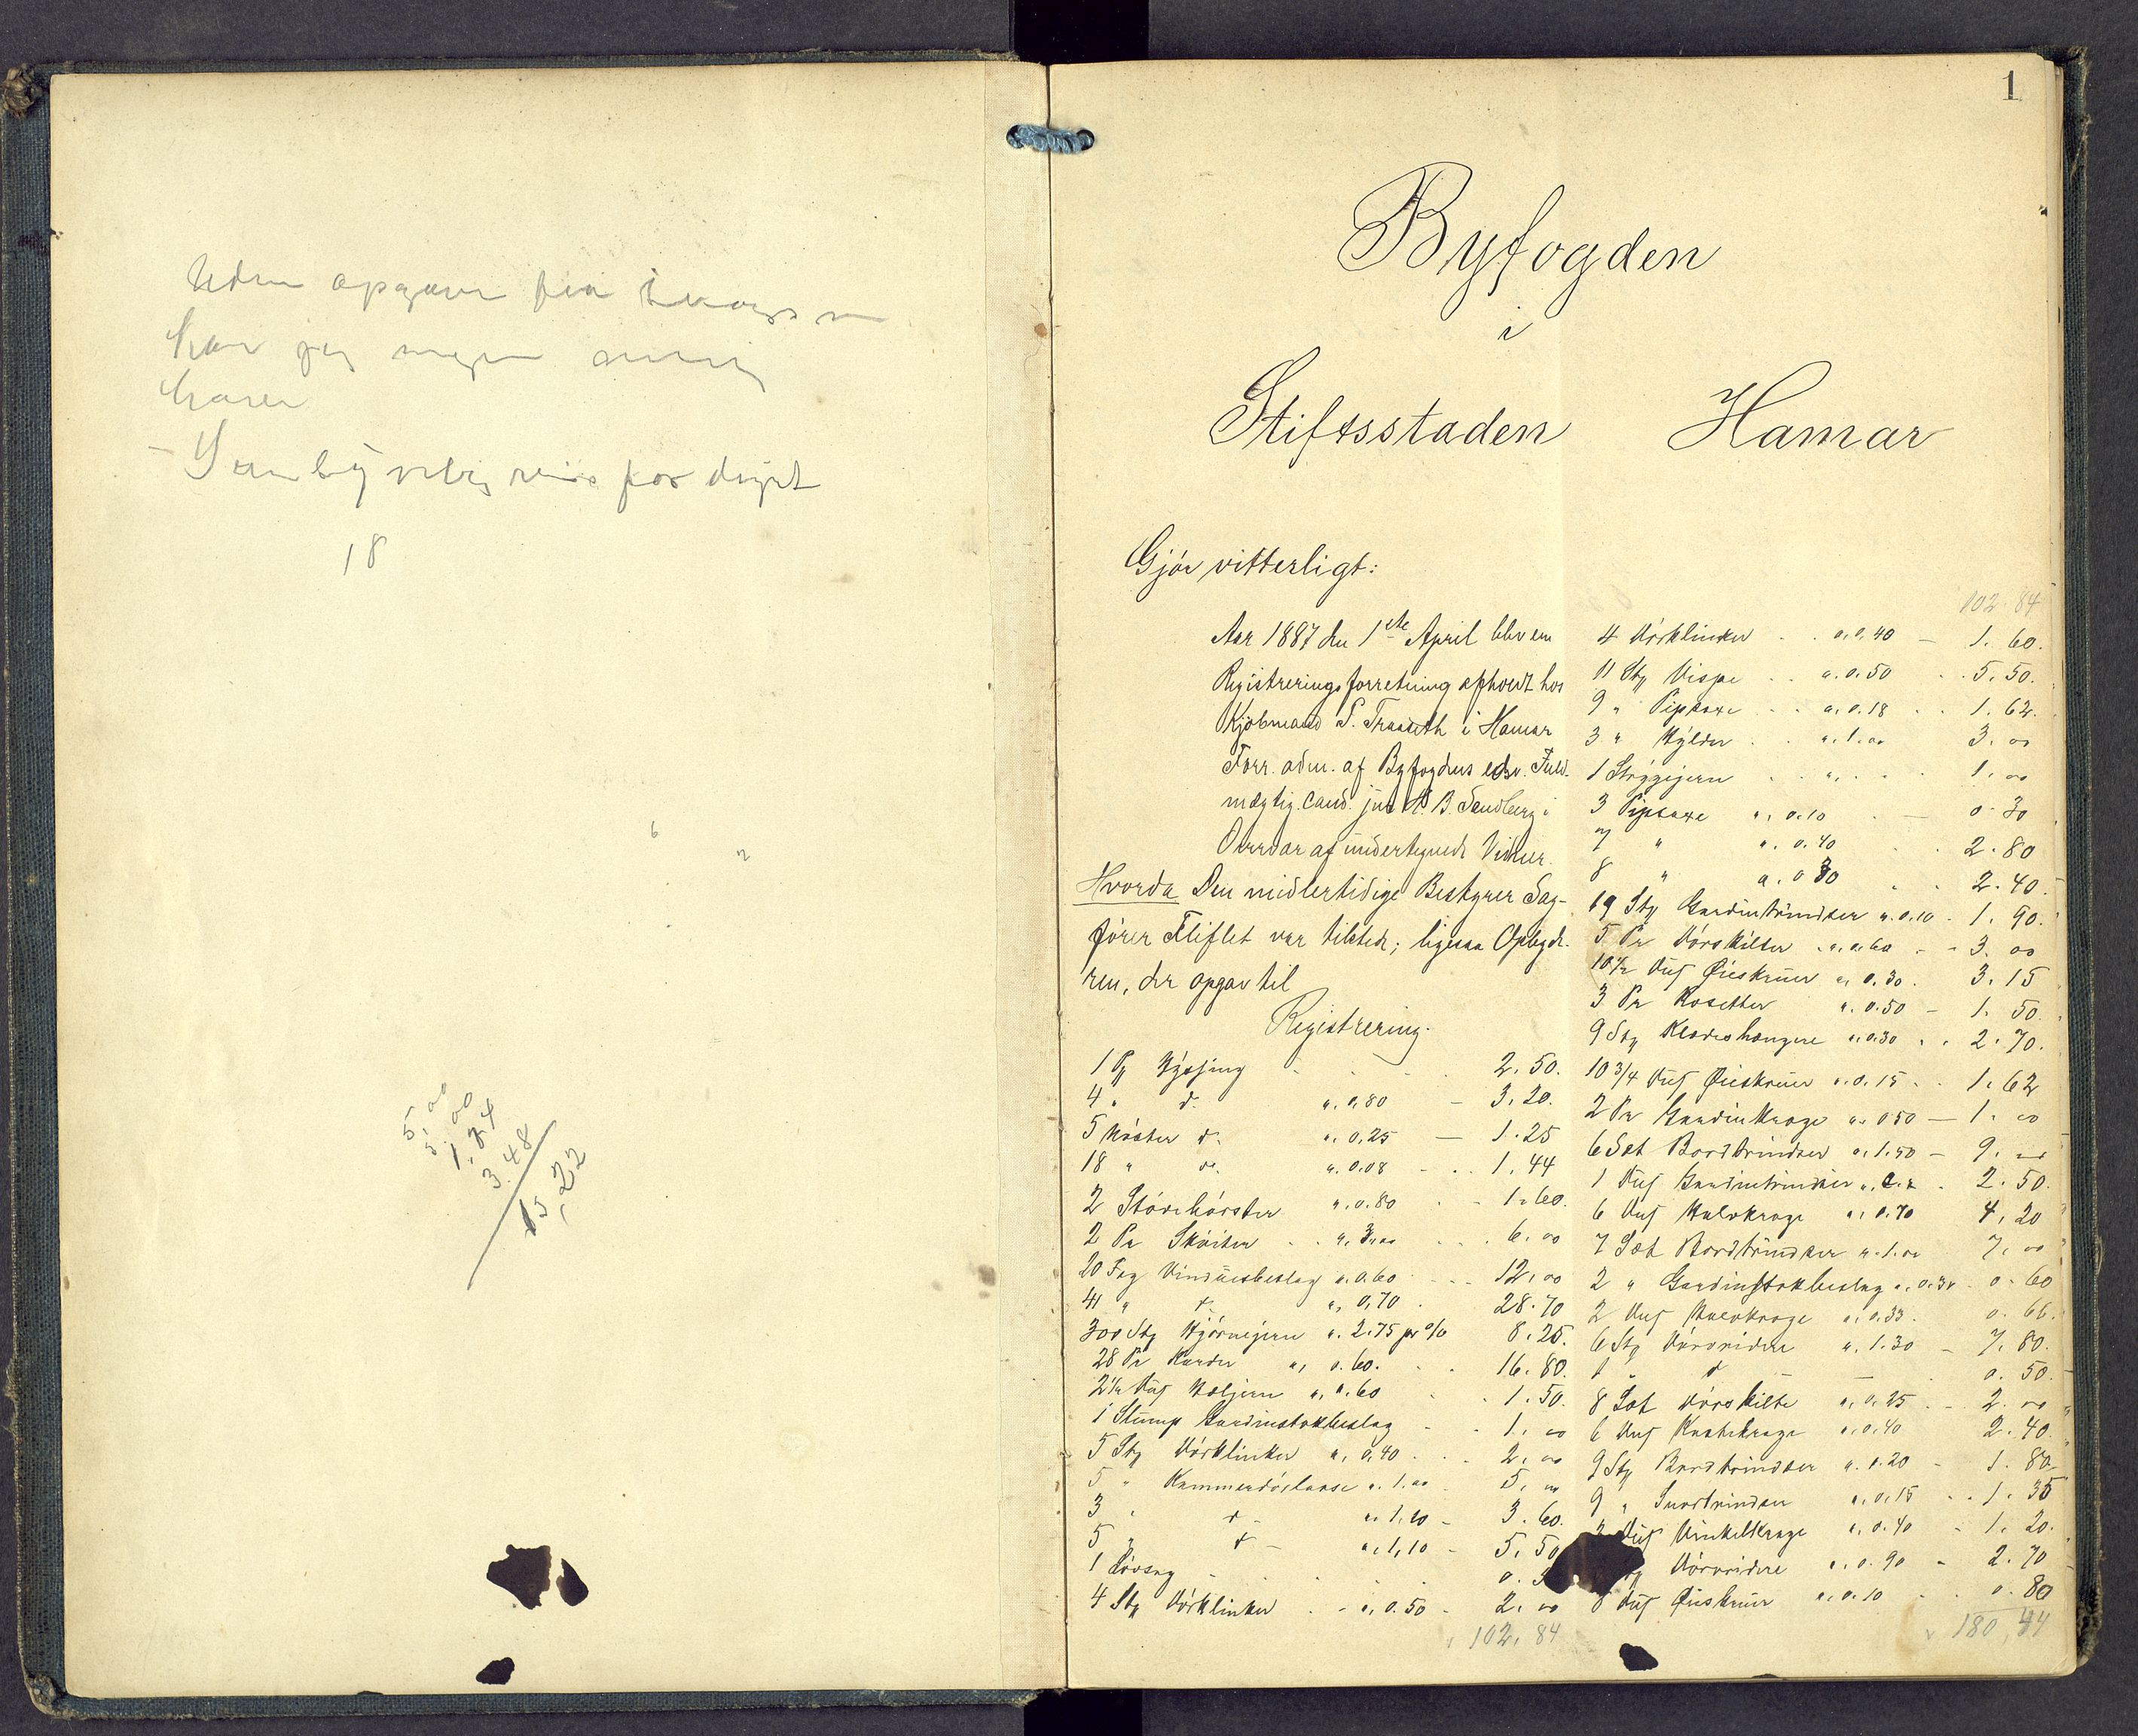 har jeg ingen
18
5,00
5,00
1,74
3.48
15,22
1
Byfogden
i
Stiftsstaden Hamar
Gjör vitterligt:
Aar 1887 den 1ste April blev en
Registreringsforretning afholdt hos
Kjöbmand P. Traaseth i Hamar
Forr. adm. af Byfogdens edsv. Fuld-
mægtig cand. jur. B. Sandberg i
Overvær af undertegnede Vidner.
Hvorda Den midlertidige Bestyrer Sag-
förer Fliflet var tilstede; ligesaa Opbyde-
ren, der opgav til
Registrering.
1 2.50.
4 " d. a. 0,80 - 3.20.
5 d. a. 0,25 - 1.25
18 " d. a. 0.08 - 1.44
2 Stövebörster a. 0.80 - 1.60.
2 Pr Sköiter a. 3,00 6.00
20 Fag Vinduesbeslag a. 0.60 - 12,00
41 " d. a. 0,70 . 28.70
300 Stk Hjörnejern a. 2.75 pr % 8.25.
28 Pr a. 0.60. 16.80.
2½ Dus a. 0.60 1.50.
1 Slump Gardinstokbeslag 1.00
5 Stk Dörklinker a. 0,40 . 2.00
5 " Kammerdörlaase a. 1.00 5.00
3 " d - a. 1.20 - 3.60.
5 " d - a. 1,10 - 5.50
1 Lövsag 0.
4 Stk Dörklinker a. 0.50 - 2.00
102.84
102.84
4 Dörklinker a. 0.40 - 1.60.
11 Stk Vispe a. 0.50 5.50.
9 " a. 0.18 1.62.
3 " Hylder a. 1.00 3.00
1 Strygejern 1.00
3 a. 0.10 - 0.30
7 " a. 0.40 2.80
8 " a. 0.30 2.40.
19 Stk Gardintrindser a. 0.10 - 1.90.
5 Pr Dörskilter a. 0.60 - 3.00
10½ Dus Öieskruer a. 0.30. 3.15
3 Pr Rosetter a. 0.50 - 1.50.
9 Stk Klædeshængere a. 0.30 2.70.
10 3/4 Dus Öieskruer a. 0.15 1.62
2 Pr Gardinkroge a. 0.50 - 1.00
6 Sæt Bordtrindser a. 1.50 - 9.00
1 Dus Gardintrindser 2.50.
6 Dus Halvkroge a. 0.70 4.20
7 Sæt Bordtrindser a. 1.00 7.00
2 " Gardinstokbeslag a. 0.30 0.60
2 Dus Halvkroge a. 0.33. 0.66.
6 Stk Dörvridere a. 1.30 - 7.80.
1 " d - 0.50.
8 Sæt Dörskilte a. 0.25 - 2.00
6 Dus a. 0.40 2.40.
9 Stk Bordtrindser a. 0.20 - 1.80
9 " a. 0.15 1.35
Dus Vinkelkroge a. 0.40 - 1.20.
Dörvridere a. 0.90 - 2.70
8 Dus Öieskruer a. 0.10 0.80
180,44